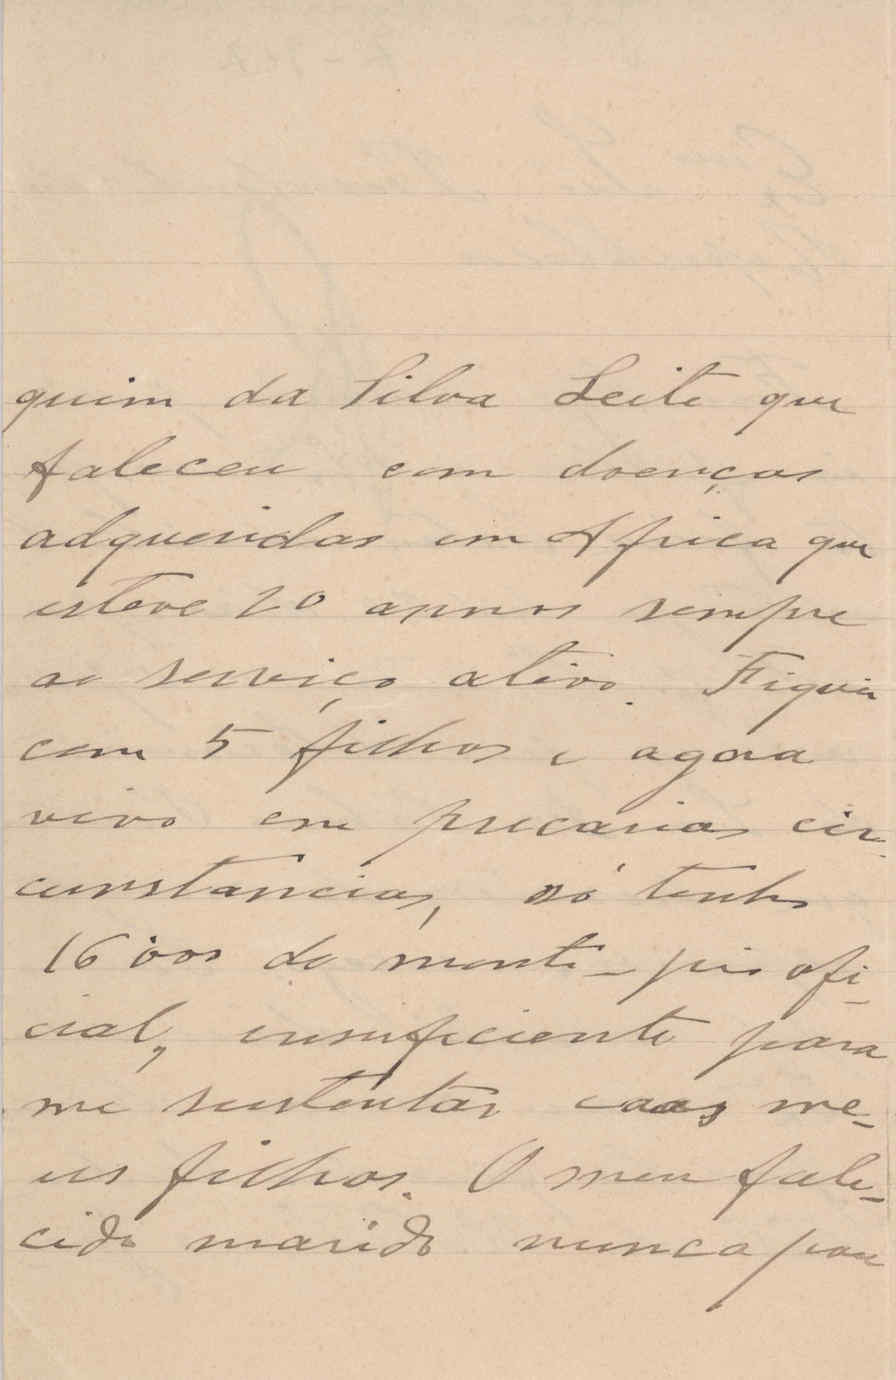 quim da Silva Leite que
faleceu com doenças
adqueridas em Africa que
esteve 20 annos sempre
ao serviço ativo. Fiquei
com 5 filhos e agora
vivo em precarias cir-
cunstancias, só tenho
16000 do monte-pio ofi-
cial, insuficiente para
me sustentar e aos me-
us filhos. O meu fale-
cido marido nunca pou